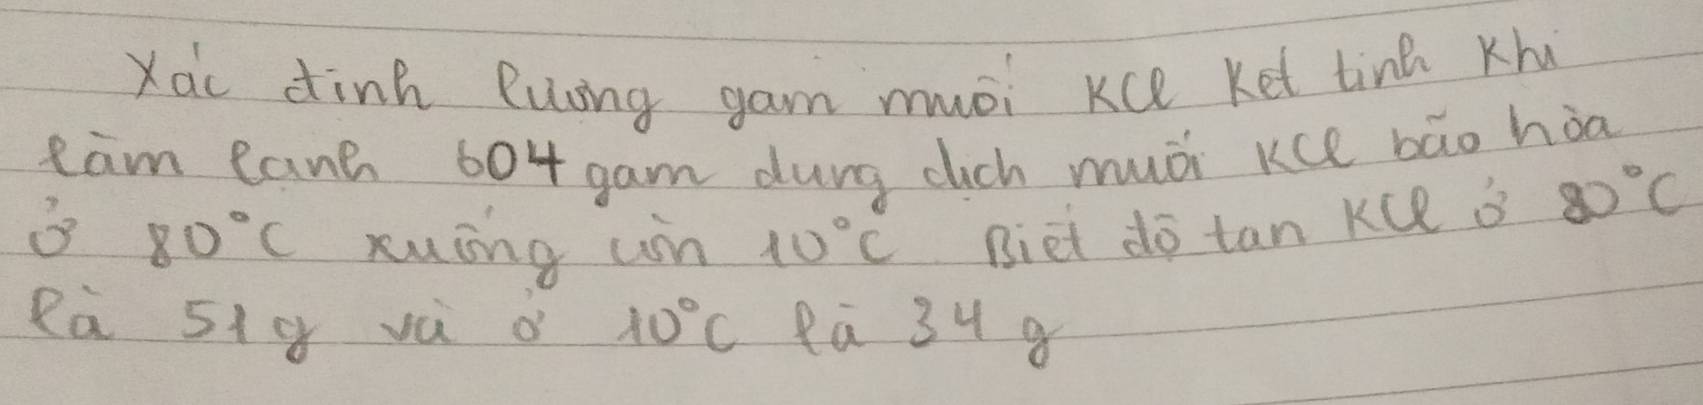 Xác định lượng gam muối KCl Kết tinh Khi
làm lạnh 604 gam dung dịch muối KCl bão hòa
ở 80°C xuống còn 10°C Biết độ tan KCl ở 80°C
là 51g và ở 10°C là 34 g